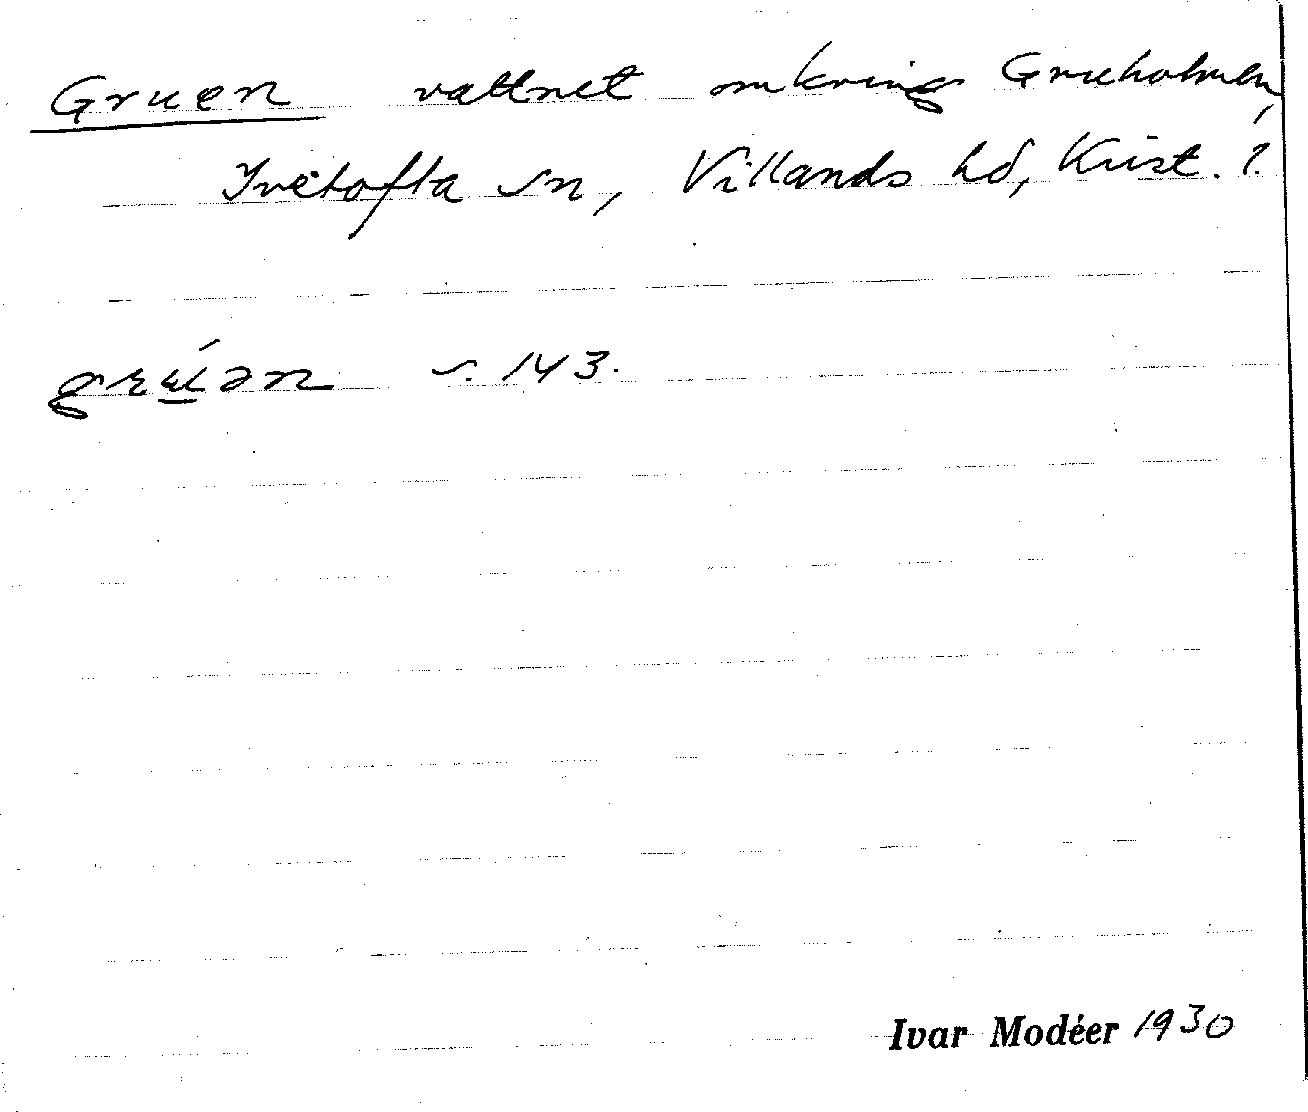 Gruen vattnet omkring Grueholmen,
Ivetofta sn, Villands hd, Krist. l.
s. 143.
Ivar Modéer 1930